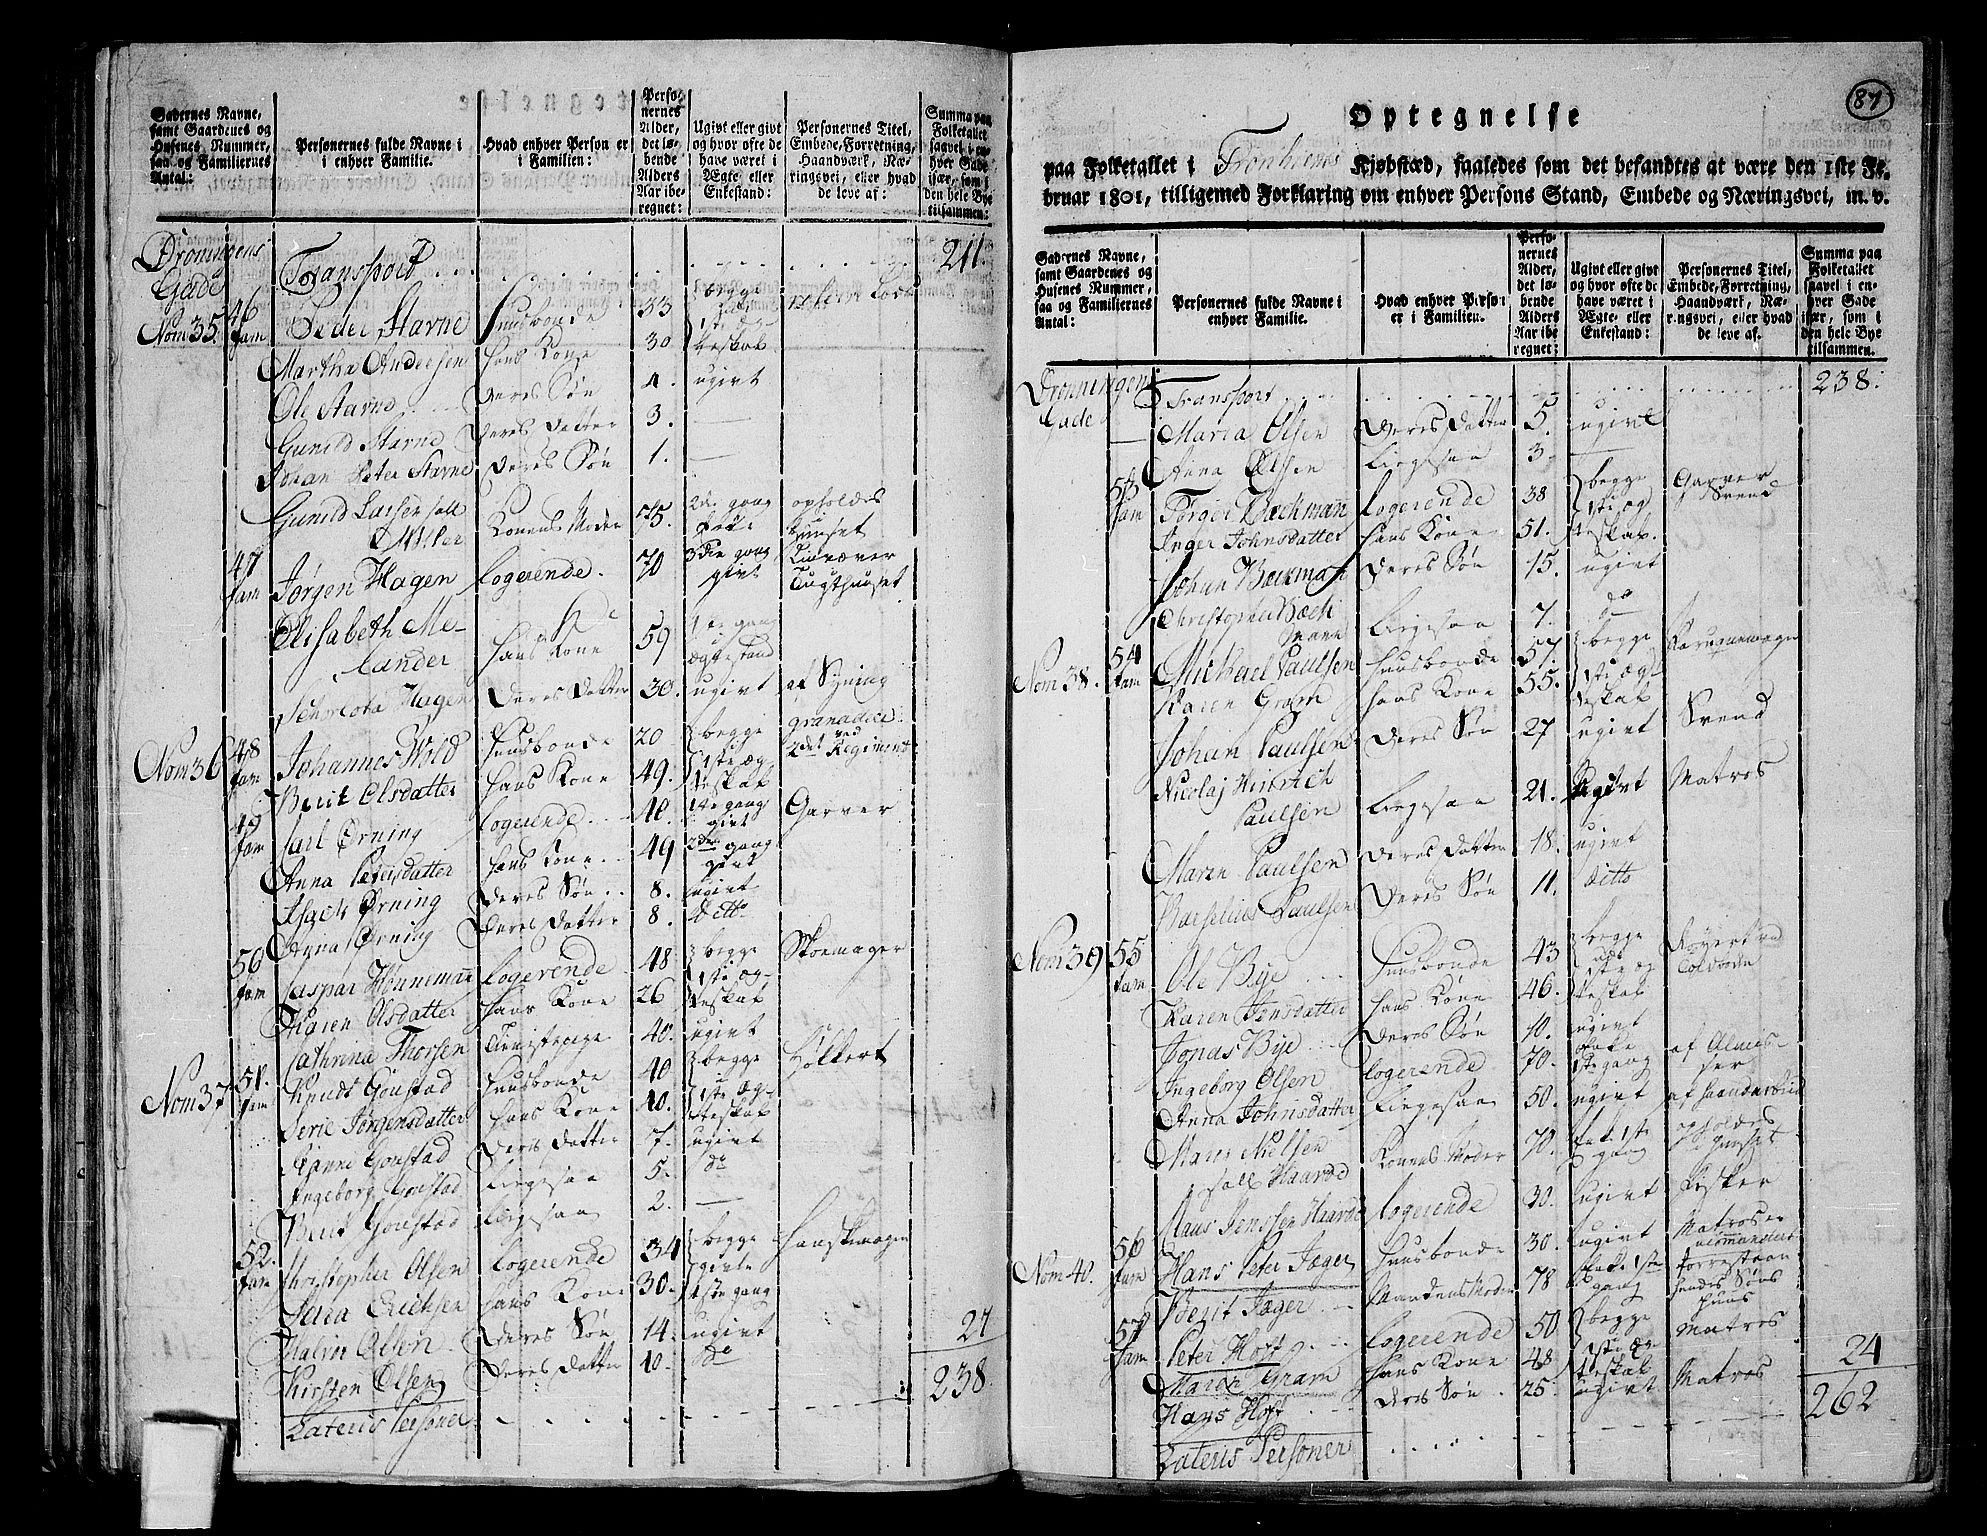 Gadernes Navne, samt Gaardenes og Husenes Nummer, saa og Familiernes Antal:
Personernes fulde Navne i enhver Familie.
Hvad enhver Person er i Familien:
Personernes Alder, det løbende Alders Aar iberegnet:
Ugivt eller givt og hvor ofte de have været i Ægte eller Enkestand:
Personernes Titel, Embede, Forretning, Haandværk, Næringsvei, eller hvad de leve af:
Summa paa Folketallet saavel i enhver Gade især, som i den hele Bye tilsammen:
Dronningens Gade Transport 211.
Nom 35. 46 fam Peder Starne Huusbonde 33 begge
Martha Andersen hans Kone 30 1ste Ægteskab
Ole Starne deres Søn 4. ugivt
Gunild Starne deres datter 3. —
Johan Peter Starne deres Søn 1. —
Gunild Larsen sall Møller Konens Moder 55. 2de gang Enke opholdes i huuset
47 fam Jørgen Hagen logerende. 70 3die gang givt Tugthuuset
Elisabeth Melander hans Kone 59 1te gang ægtestand
Hagen deres datter 30. ugivt af Syning
Nom 36 48 fam Johannes Wold Huusbonde 20 begge granadeer ved 2det Regiment
Berit Olsdatter hans Kone 49. 1ste Ægteskab
49 fam Carl Ørning logerende 40. 1te gang givt Garver
Anna Petersdatter hans Kone 49 2den gang givt
Isach Ørning deres Søn 8. ugivt
Anna Ørning deres datter 8. ditto
50 fam Caspar Hannemann logerende 48 begge Skomager
Karen Olsdatter hans Kone 26 1ste Ægteskab
Cathrina Thorsen Tienistepige 40. ugivt
Nom 37 51. fam Knuds Gonstad Huusbonde 40 begge Høkkert
Serie Jørgensdatter hans Kone 40. 1ste Ægteskab
Anne Gonstad deres datter 7. ugivt
Ingeborg Gonstad Ligesaa 5. do
Berit Gonstad Ligesaa 2. —
52. fam Christopher Olsen logerende 34 begge Handskemager
Sera Erichsen hans Kone 30. givte 1ste gang
Olsen deres Søn 14. ugivt
Kirsten Olsen deres datter 10. do
27
Lateris Personer 238
87
Optegnelse
paa Folketallet i Tronhiems Kjøbstæd, saaledes som det befandtes at være den 1ste Februar 1801, tilligemed Forklaring om enhver Persons Stand, Embede og Næringsvei, m. v.
Gadernes Navne, samt Gaardenes og Husenes Nummer, saa og Familiernes Antal:
Personernes fulde Navne i enhver Familie.
Hvad enhver Person er i Familien.
Personernes Alder, det løbende Alders Aar iberegnet:
Ugivt eller givt og hvor ofte de have været i Ægte- eller Enkestand:
Personernes Titel, Embede, Forretning, Haandværk, Næringsvei, eller hvad de leve af.
Summa paa Folketallet saavel i enhver Gade især, som i den hele Bye tilsammen.
Dronningens Gade Transport 238.
Maria Olsen deres datter 5. ugivt
Anna Olsen Ligesaa 3 —
53 fam Tørger Beckmann logerende 38 begge Garver Svend
Inger Johnsdatter hans Kone 51. 1ste Ægteskab.
Johan Beckman deres Søn 15. ugivt
Christopher Beckmann Ligesaa 7. do
Nom 38. 54 fam Michael Paulsen Huusbonde 57. begge
Karen Gram hans Kone 55. 1ste Ægteskab
Johan Paulsen deres Søn 27 ugivt Svend
Nicolaj Hinrich Paulsen Ligesaa 21. ugivt Matros
Maren Paulsen deres datter 18. ugivt
Paulsen deres Søn 11. ditto
Nom 39 55 fam Ole Bye Huusbonde 43 begge Toldboden
Karen Jonsdatter hans Kone 46. 1ste Ægteskab
Jonas Bye deres Søn 10. ugivt
Ingeborg Olsen logerende 70. Enke 1ste gang af Almisser
Anna Johnsdatter Ligesaa 50. ugivt af Haandarbeid
Maris Nielsen sall Haarød Konens Moder 70. Enke 1ste gang opholdes i huuset
Maus Jenssen Haarød logerende 30. ugivt Fisker
Nom 40. 56 fam Hans Peter Jæger Huusbonde 30. ugivt Matros
Berit Jæger Mandens Moder 78 Enke 1ste gang forrestaar hendes Søns Huus
57 fam Peter Hoft logerende 50 begge Matros
Maren Gram hans Kone 48 1ste Ægteskab
Hans Hoft deres Søn 25. ugivt Matros
24
Lateris Personer 262